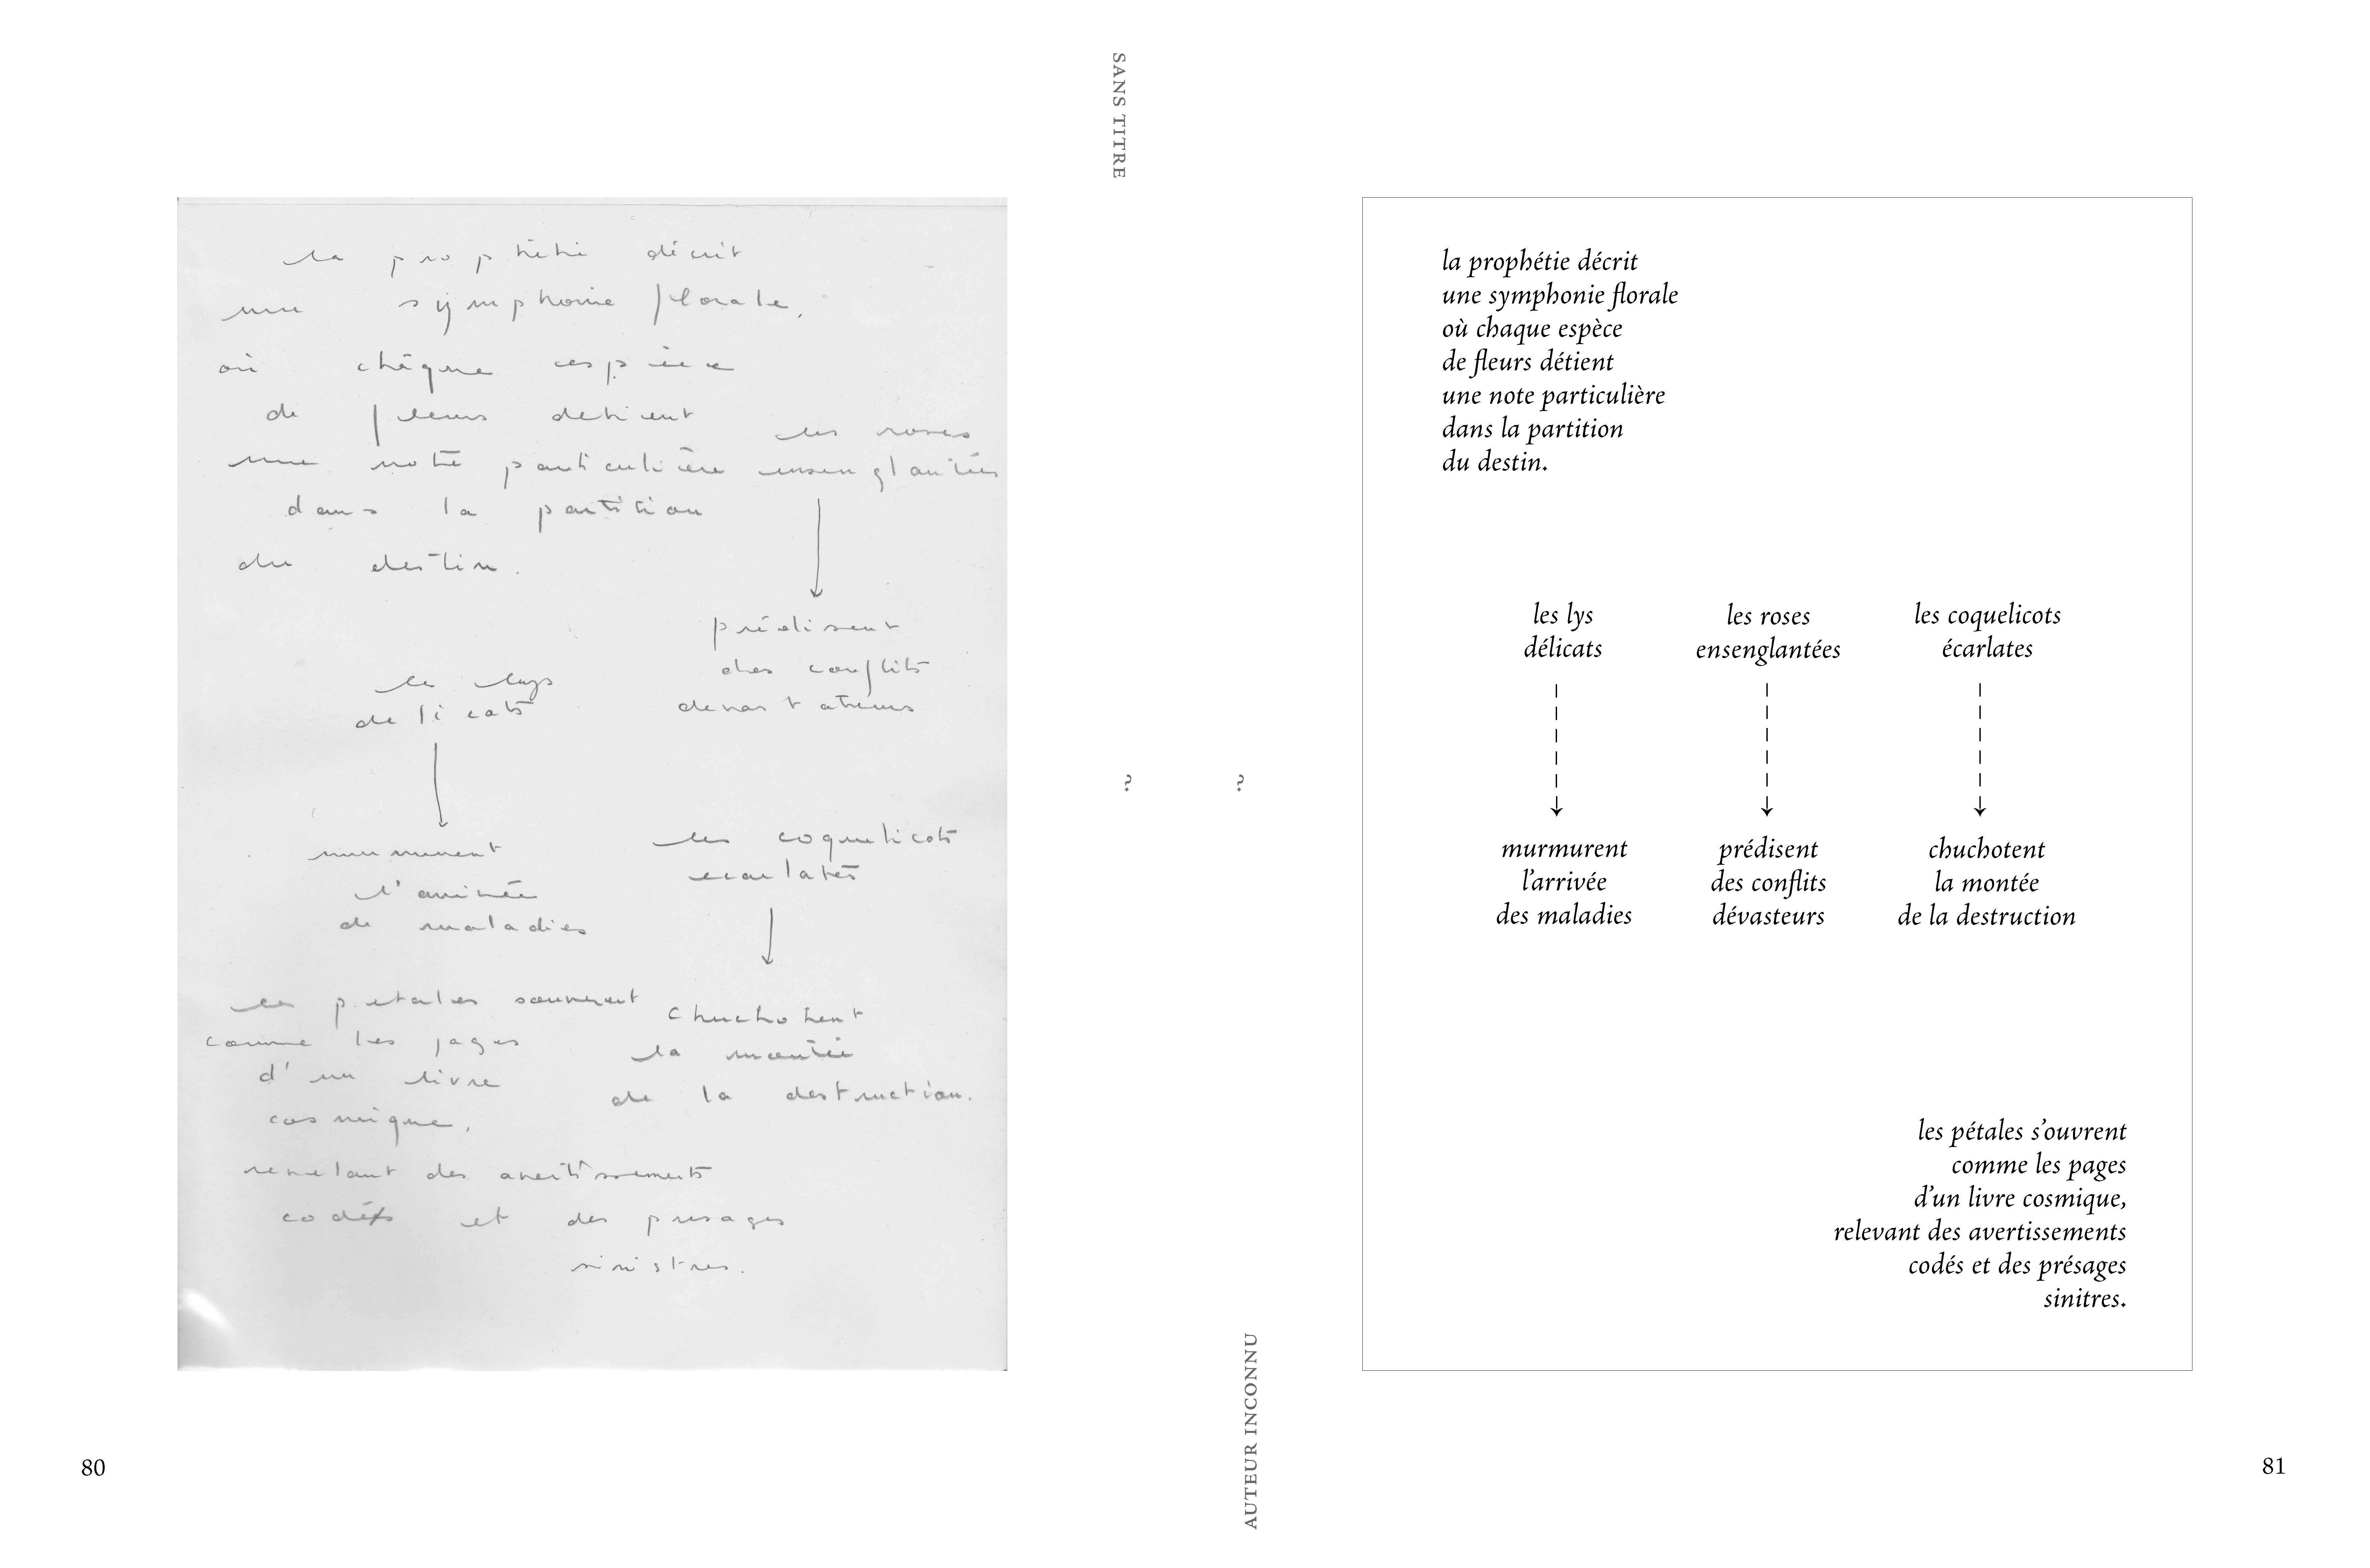 SANS TITRE
la prophétie décrit
une symphonie florale,
où chaque espèce
de fleurs detient
une note particulière
dans la partition
du destin.
les roses
ensenglantées
prédisent
des conflits
devastateurs
les lys
delicats
murmurent
l'arrivée
de maladies
les coquelicots
ecarlates
chuchotent
la montée
de la destruction.
les petales souvrent
comme les pages
d'un livre
cosmique,
revelant des avertissements
codés et des presages
sinistres.
80
?
?
AUTEUR INCONNU
la prophétie décrit
une symphonie florale
où chaque espèce
de fleurs détient
une note particulière
dans la partition
du destin.
les lys
délicats
murmurent
l'arrivée
des maladies
les roses
ensenglantées
prédisent
des conflits
dévasteurs
les coquelicots
écarlates
chuchotent
la montée
de la destruction
les pétales s'ouvrent
comme les pages
d'un livre cosmique,
relevant des avertissements
codés et des présages
sinitres.
81